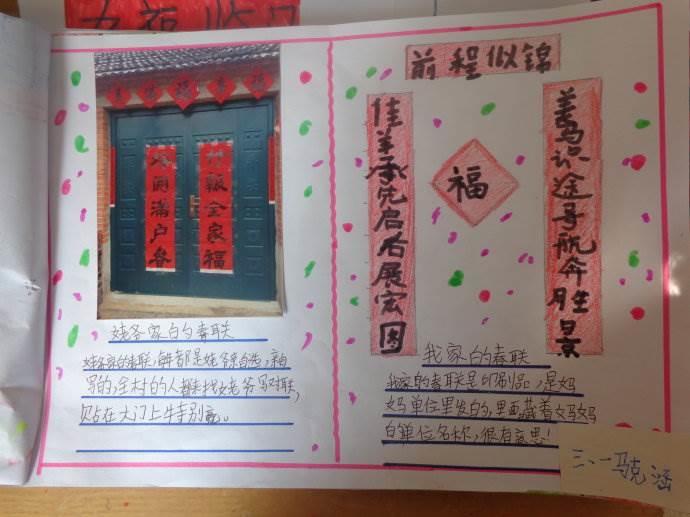 竹報全家福
開满户春
姥爷家的春联
姥爷家的春联,每年都是姥爷亲自选,亲自
写的,全村的人都来找姥爷写对联,
贴在大门上特别
前程似锦
善马识途导航奔胜景
佳羊承先启后展宏图
福
我家的春联
我家的春联是印刷品,是妈
妈单位里发的,里面藏着妈妈
的单位名称,很有意思!
三、一 马克涵